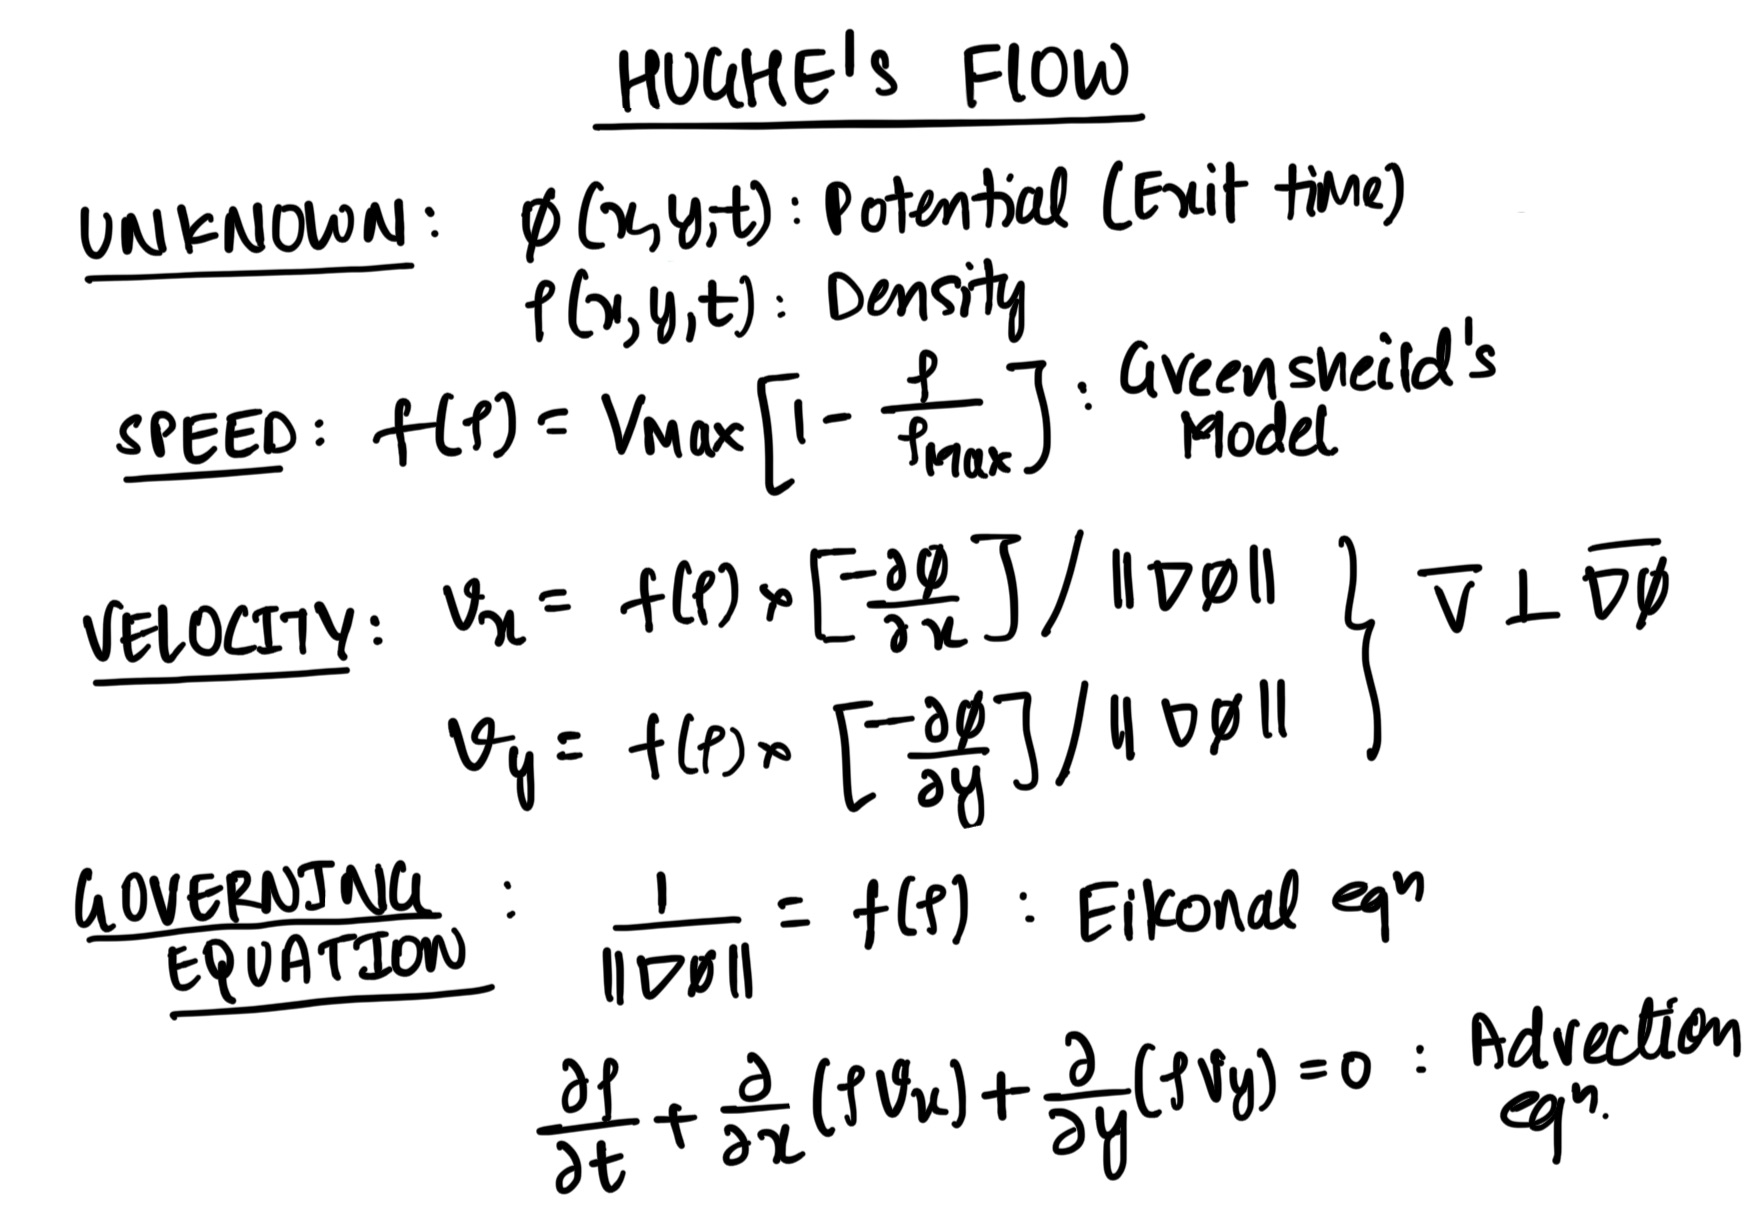 HUGHE's FLOW
UNKNOWN: ϕ(x,y,t): Potential (Exit time)
ρ(x,y,t): Density
SPEED: f(ρ) = Vmax [1 - ρ/ρmax] : Greensheild's Model
VELOCITY: vx = f(ρ) × [-∂ϕ/∂x] / ||∇ϕ|| } V̅ ⊥ ∇ϕ̅
vy = f(ρ) × [-∂ϕ/∂y] / ||∇ϕ||
GOVERNING EQUATION : 1/||∇ϕ|| = f(ρ) : Eikonal eqⁿ
∂ρ/∂t + ∂/∂x (ρvx) + ∂/∂y (ρvy) = 0 : Advection eqⁿ.